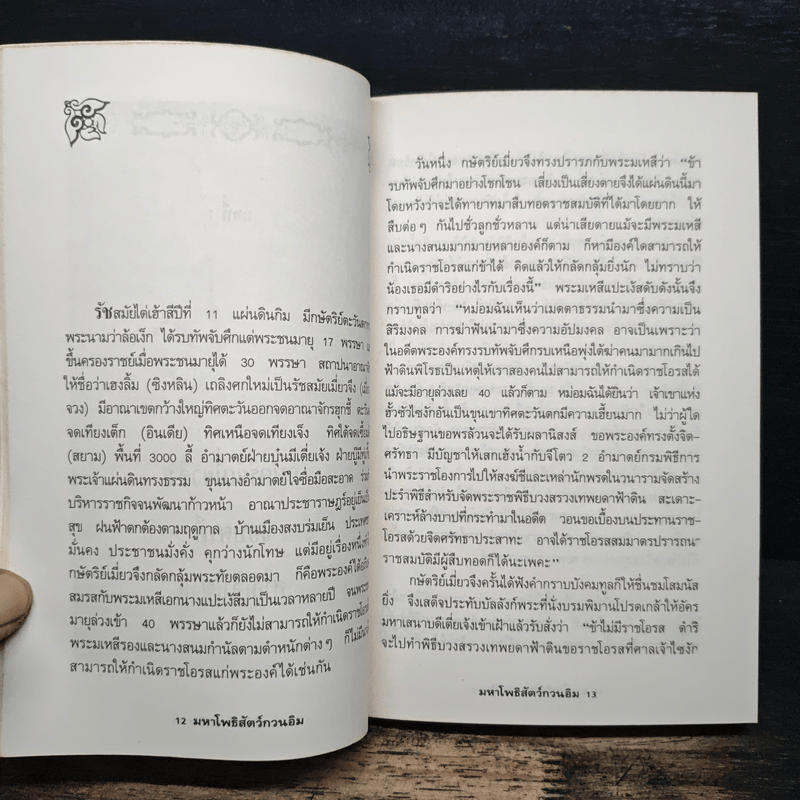 รัชสมัยไต่เฮ้าสีปีที่ 11 แผ่นดินกิม มีกษัตริย์ตะวันตก
พระนามว่าล้อเง็ก ได้รบทัพจับศึกแต่พระชนมายุ 17 พรรษา
ขึ้นครองราชย์เมื่อพระชนมายุได้ 30 พรรษา สถาปนาอาณาจักร
ให้ชื่อว่าเฮงลิ้ม (ซิงหลิน) เถลิงศกใหม่เป็นรัชสมัยเมี่ยวจึง
จวง) มีอาณาเขตกว้างใหญ่ทิศตะวันออกจดอาณาจักรฮุกซี้
จดเทียงเต็ก (อินเดีย) ทิศเหนือจดเทียงเจ็ง ทิศใต้จด
(สยาม) พื้นที่ 3000 ลี้ อำมาตย์ฝ่ายบุ๋นมีเตี่ยเจ้ง
พระเจ้าแผ่นดินทรงธรรม ขุนนางอำมาตย์ใจซื่อมือสะอาด
บริหารราชกิจจนพัฒนาก้าวหน้า อาณาประชาราษฎร์อยู่เย็น
สุข ฝนฟ้าตกต้องตามฤดูกาล บ้านเมืองสงบร่มเย็น
มั่นคง ประชาชนมั่งคั่ง คุกว่างนักโทษ แต่มีอยู่เรื่องหนึ่งที่
กษัตริย์เมี่ยวจึงกลัดกลุ้มพระทัยตลอดมา ก็คือพระองค์ได้
สมรสกับพระมเหสีเอกนางแปะเง้สีมาเป็นเวลาหลายปี จน
มายุล่วงเข้า 40 พรรษาแล้วก็ยังไม่สามารถให้กำเนิดราชโอรส
พระมเหสีรองและนางสนมกำนัลตามตำหนักต่างๆ ก็ไม่มี
สามารถให้กำเนิดราชโอรสแก่พระองค์ได้เช่นกัน
12 มหาโพธิสัตว์กวนอิม
วันหนึ่ง กษัตริย์เมี่ยวจึงทรงปรารภกับพระมเหสีว่า “ข้า
รบทัพจับศึกมาอย่างโชกโชน เสี่ยงเป็นเสี่ยงตายจึงได้แผ่นดินนี้มา
โดยหวังว่าจะได้ทายาทมาสืบทอดราชสมบัติที่ได้มาโดยยาก ให้
สืบต่อๆ กันไปชั่วลูกชั่วหลาน แต่น่าเสียดายแม้จะมีพระมเหสี
และนางสนมมากมายหลายองค์ก็ตาม ก็หามีองค์ใดสามารถให้
กำเนิดราชโอรสแก่ข้าได้ คิดแล้วให้กลัดกลุ้มยิ่งนัก ไม่ทราบว่า
น้องเธอมีดำริอย่างไรกับเรื่องนี้” พระมเหสีแปะเง้สดับดังนั้นจึง
กราบทูลว่า “หม่อมฉันเห็นว่าเมตตาธรรมนำมาซึ่งความเป็น
สิริมงคล การฆ่าฟันนำมาซึ่งความอัปมงคล อาจเป็นเพราะว่า
ในอดีตพระองค์ทรงรบทัพจับศึกรบเหนือพุ่งใต้ฆ่าคนมามากเกินไป
ฟ้าดินพิโรธเป็นเหตุให้เราสองคนไม่สามารถให้กำเนิดราชโอรสได้
แม้จะมีอายุล่วงเลย 40 แล้วก็ตาม หม่อมฉันได้ยินว่า เจ้าเขาแห่ง
ฮั้วซัวไซงักอันเป็นขุนเขาทิศตะวันตกมีความเฮี้ยนมาก ไม่ว่าผู้ใด
ไปอธิษฐานขอพรล้วนจะได้รับผลานิสงส์ ขอพระองค์ทรงตั้งจิต-
ศรัทธา มีบัญชาให้เสกเฮ้งน้ำกับจีโตว 2 อำมาตย์กรมพิธีการ
นำพระราชโองการไปให้สงฆ์ชีและเหล่านักพรตในวนารามจัดสร้าง
ปะรำพิธีสำหรับจัดพระราชพิธีบวงสรวงเทพยดาฟ้าดิน สะเดาะ-
เคราะห์ล้างบาปที่กระทำมาในอดีต วอนขอเบื้องบนประทานราช-
โอรสด้วยจิตศรัทธาประสาทะ อาจได้ราชโอรสสมมาตรปรารถน-
ราชสมบัติมีผู้สืบทอดก็ได้นะเพคะ”
กษัตริย์เมี่ยวจึงครั้นได้ฟังคำกราบบังคมทูลก็ให้ชื่นชมโสมนัส
ยิ่ง จึงเสด็จประทับบัลลังก์พระที่นั่งบรมพิมานโปรดเกล้าให้อัคร
มหาเสนาบดีเตี่ยเจ้งเข้าเฝ้าแล้วรับสั่งว่า “ข้าไม่มีราชโอรส ดำริ
จะไปทำพิธีบวงสรวงเทพยดาฟ้าดินขอราชโอรสที่ศาลเจ้าไซงัก
มหาโพธิสัตว์กวนอิม 13